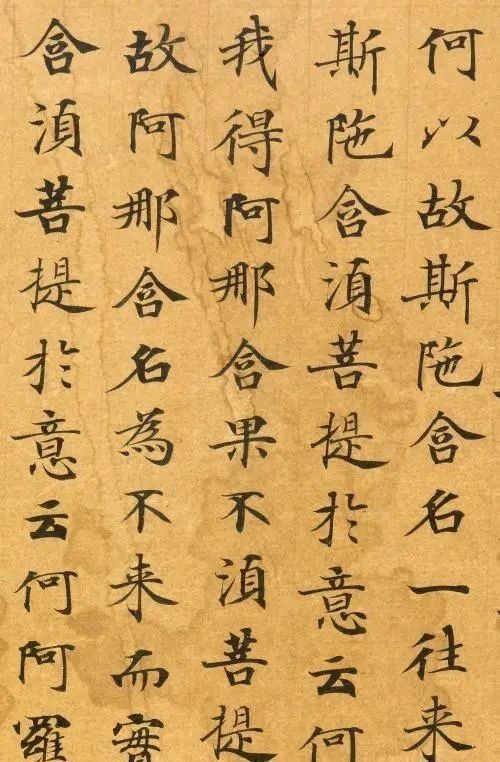 何以故斯陁含名一往来
斯陁含湏菩提於意云何
我得阿那含果不湏菩提
故阿那含名為不来而實
含湏菩提於意云何阿羅